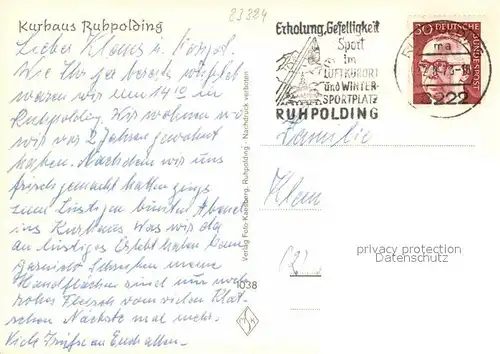 Kurhaus Ruhpolding
83324
Lieber Klaus u.
Wie Ihr ja bereits wißt
waren wir um 14 10 in
Ruhpolding. Wir wohnen wo
wir vor 2 Jahren gewohnt
haben. Nachdem wir uns
frisch gemacht hatten gings
zum Lustigen bunten Abend
ins Kurhaus. Was wir da
an lustiges erlebt haben kann
garnicht schreiben meine
Handflächen sind nur noch
rohes Fleisch vom vielen Klat-
schen Nächste mal mehr.
Viele Grüße an Euch allen.
Verlag Foto-Kamberg, Ruhpolding - Nachdruck verboten
1038
Erholung, Geselligkeit
Sport
im
LUFTKURORT
und WINTER-
SPORTPLATZ
RUHPOLDING
30
DEUTSCHE BUNDESPOST
ma
8222
Familie
Klau
privacy protection
Datenschutz